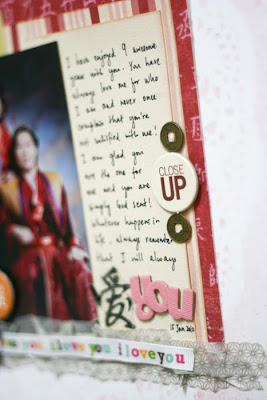 I have enjoyed 9 awesome
years with you. You have
always love me for who
I am and never once
complain that you're
not satisfied with me!
I am glad you
are the one for
me and you are
simply God sent!
Whatever happens in
life, always remember
that I will always
爱 you
CLOSE
UP
15 Jan 2010
you i love you i love you